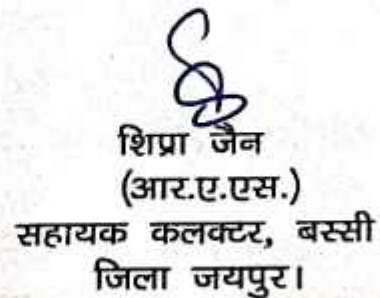 शिप्रा जैन
(आर.ए.एस.)
सहायक कलक्टर, बस्सी
जिला जयपुर।